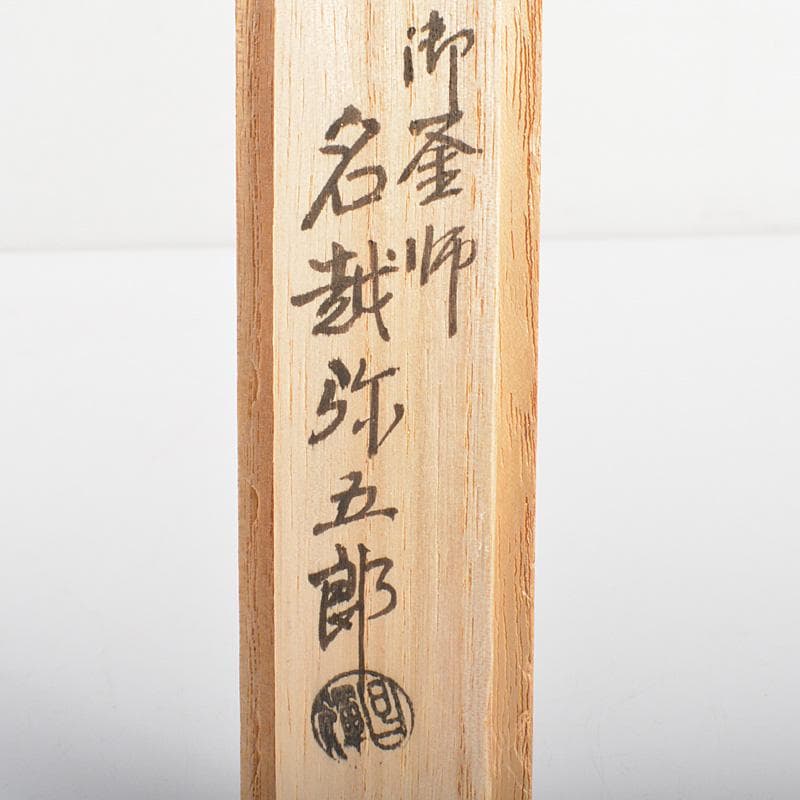 御釜師
名越弥五郎